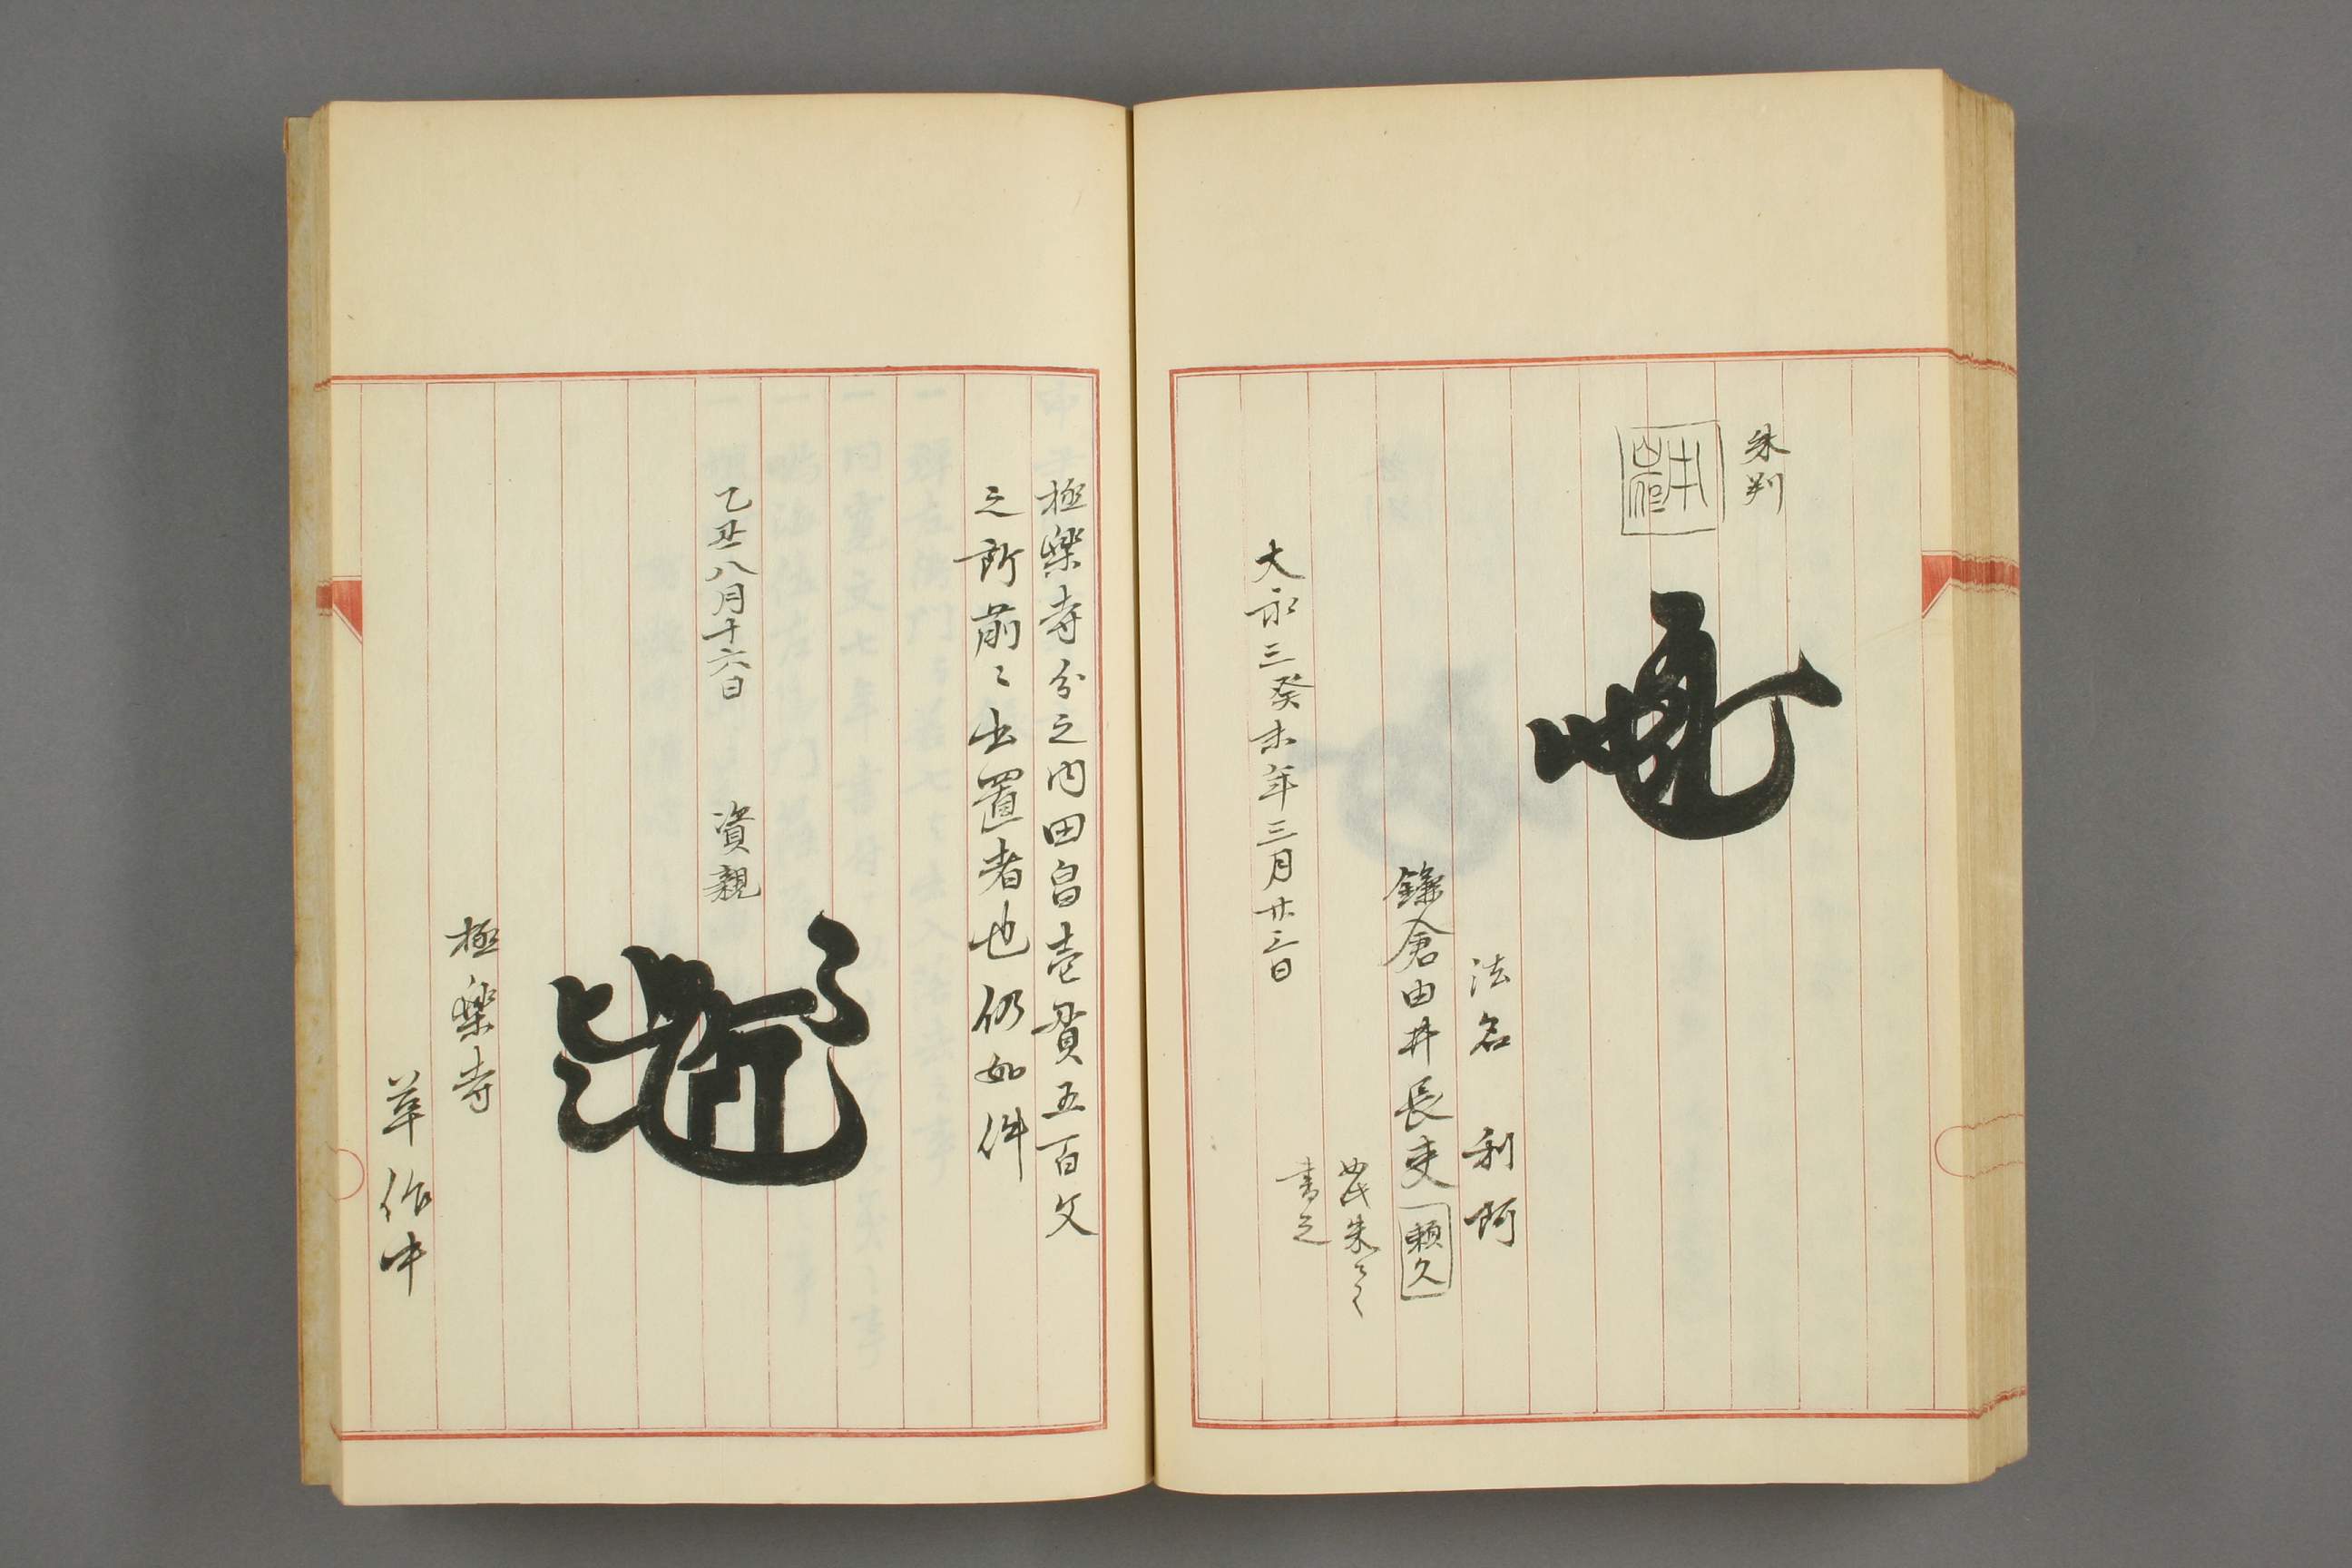 朱判
法名 利阿
鎌倉由井長吏頼久
書之
大永三癸未年三月廿三日
極楽寺分之内田畠壱貫五百文
之所前々出置者也仍如件
乙丑八月十六日 資親
極楽寺
草作中